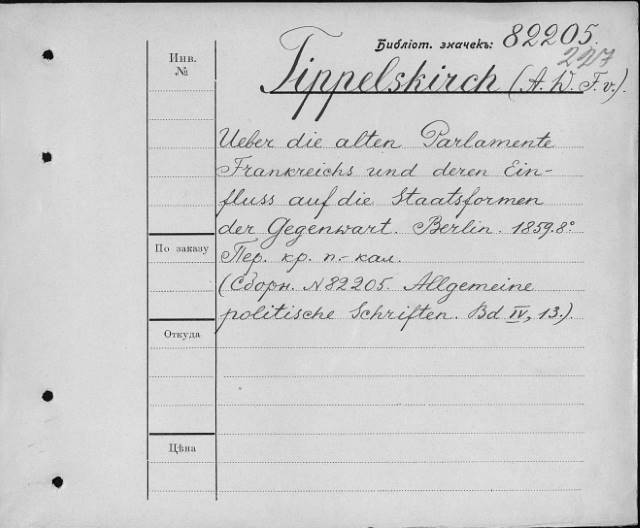 Библіот. значекъ: 82205.
227
Инв.
№
Tippelskirch (A. W. F. v.).
Ueber die alten Parlamente
Frankreichs und deren Ein-
fluss auf die Staatsformen
der Gegenwart. Berlin. 1859. 8°.
По заказу
Пер. кр. п.-кал.
(Сборн. N 82205. Allgemeine
politische Schriften. Bd IV, 13.).
Откуда
Цѣна